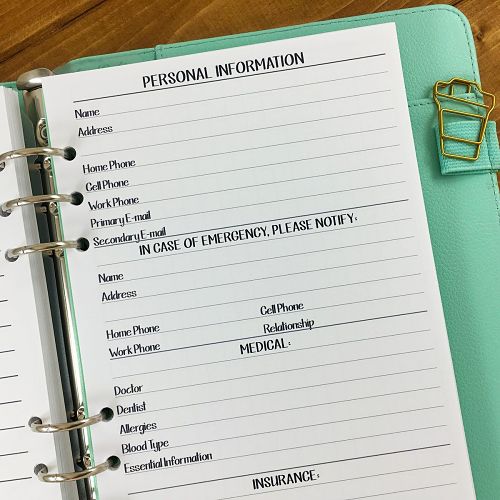 PERSONAL INFORMATION
Name
Address
Home Phone
Cell Phone
Work Phone
Primary E-mail
Secondary E-mail
IN CASE OF EMERGENCY, PLEASE NOTIFY:
Name
Address
Cell Phone
Home Phone
Relationship
Work Phone
MEDICAL:
Doctor
Dentist
Allergies
Blood Type
Essential Information
INSURANCE: